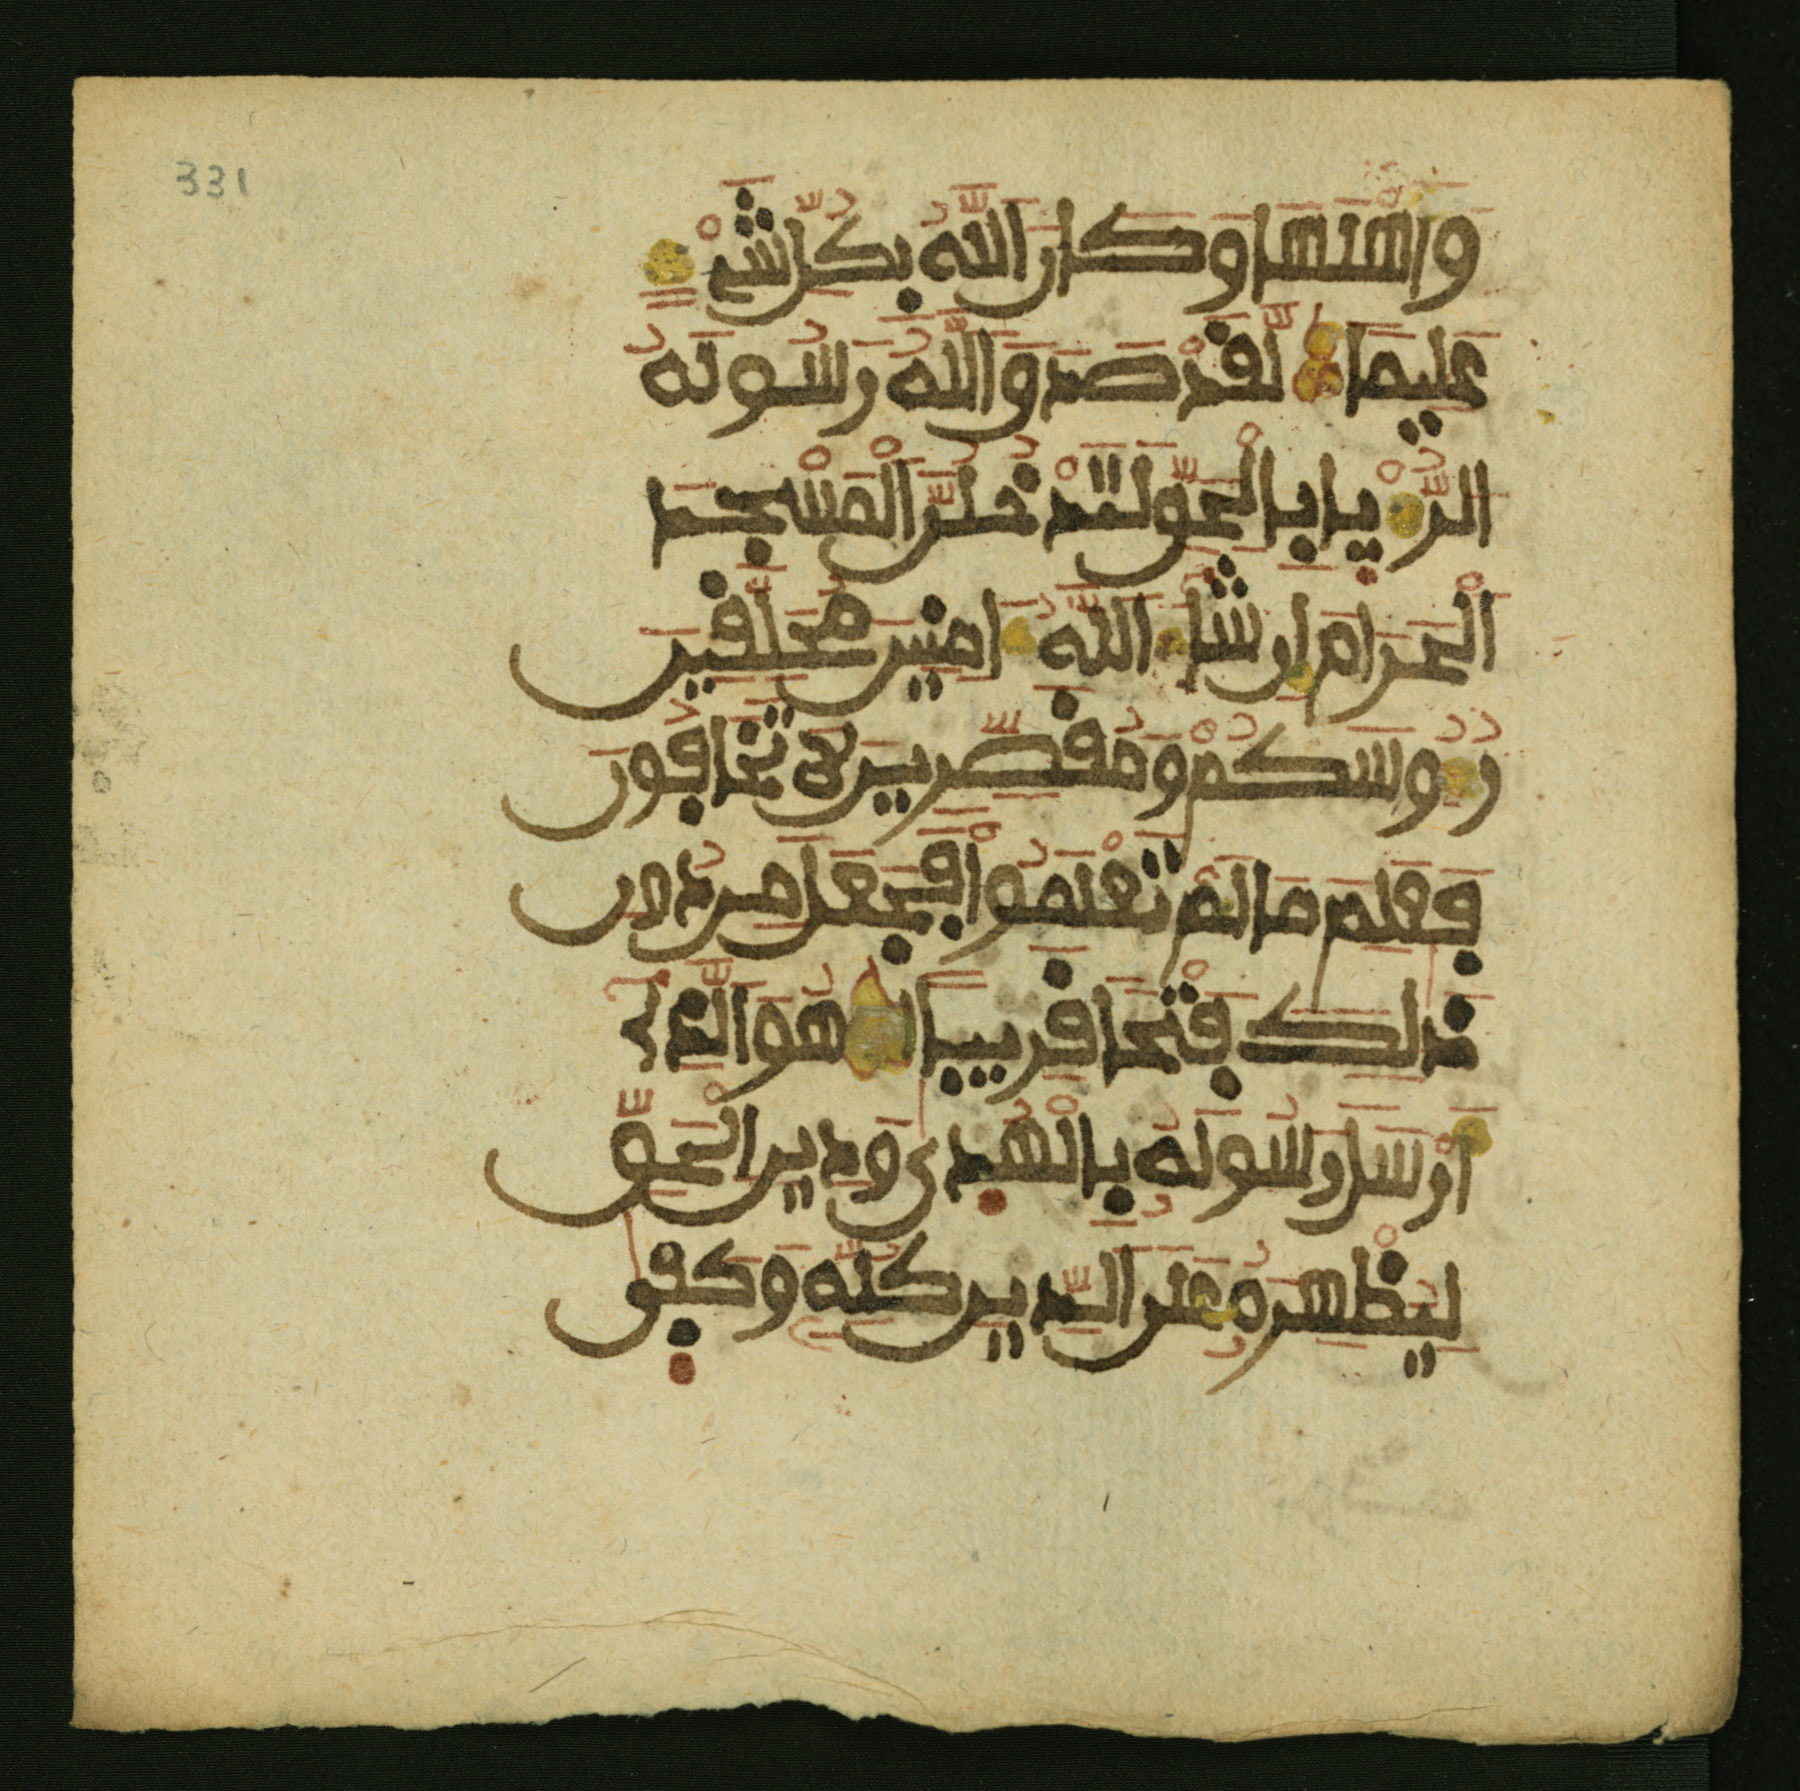 331
وَأَهْلَهَا وَكَانَ اللَّهُ بِكُلِّ شَيْءٍ
عَلِيمًا لَّقَدْ صَدَقَ اللَّهُ رَسُولَهُ
الرُّءْيَا بِالْحَقِّ لَتَدْخُلُنَّ الْمَسْجِدَ
الْحَرَامَ إِن شَاءَ اللَّهُ ءَامِنِينَ مُحَلِّقِينَ
رُءُوسَكُمْ وَمُقَصِّرِينَ لَا تَخَافُونَ
فَعَلِمَ مَا لَمْ تَعْلَمُوا فَجَعَلَ مِن دُونِ
ذَلِكَ فَتْحًا قَرِيبًا هُوَ الَّذِي
أَرْسَلَ رَسُولَهُ بِالْهُدَى وَدِينِ الْحَقِّ
لِيُظْهِرَهُ عَلَى الدِّينِ كُلِّهِ وَكَفَى